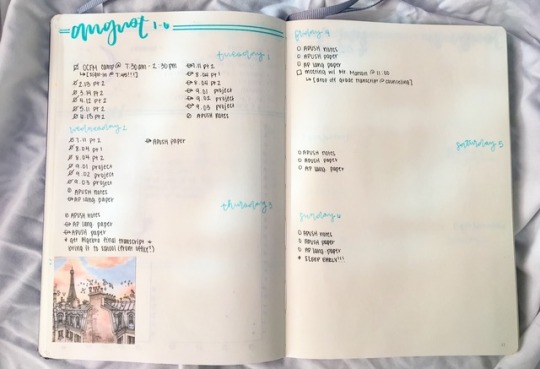 august 1-6
tuesday 1
OCFH camp @ 7:30 am - 2:30 pm
↳ [sign-in @ 7:45!!!]
2.13 pt 2
3.14 pt 2
4.12 pt 2
5.11 pt 2
6.13 pt 2
7.11 pt 2
8.04 pt 1
8.04 pt 2
9.01 project
9.02 project
9.03 project
APUSH notes
wednesday 2
7.11 pt 2
8.04 pt 1
8.04 pt 2
9.01 project
9.02 project
9.03 project
APUSH notes
AP lang paper
APUSH paper
thursday 3
APUSH notes
AP lang paper
APUSH paper
* get Algebra final transcript +
bring it to school (front office!)
friday 4
APUSH notes
APUSH paper
AP lang paper
meeting w/ Mr. @ 11:30
↳ [drop off grade transcript @ counseling]
saturday 5
APUSH notes
APUSH paper
AP lang paper
sunday 6
APUSH notes
APUSH paper
AP lang paper
* SLEEP EARLY!!!